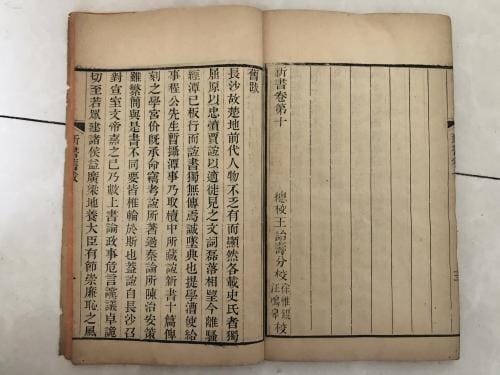 新書卷第十
總校王詒壽分校
校
三
舊跋
長沙故楚地前代人物不乏有而顯然各載史氏者獨
屈原以忠憤賈誼以適徙見之文詞磊落相望今離騷
經潭已板行而誼書獨無傳焉誠墜典也提學漕使給
事程公先生暫攝潭事乃取櫝中所藏誼新書十篇俾
刻之學宮价既承命竊考誼所著過秦論所陳治安策
雖繁簡與是書不同要皆椎輪於斯也蓋誼自長沙召
對宣室文帝嘉之已乃數上書論政事危言讜議卓詭
切至若眾建諸侯益廣梁地養大臣有節崇廉恥之風
新書舊跋
一